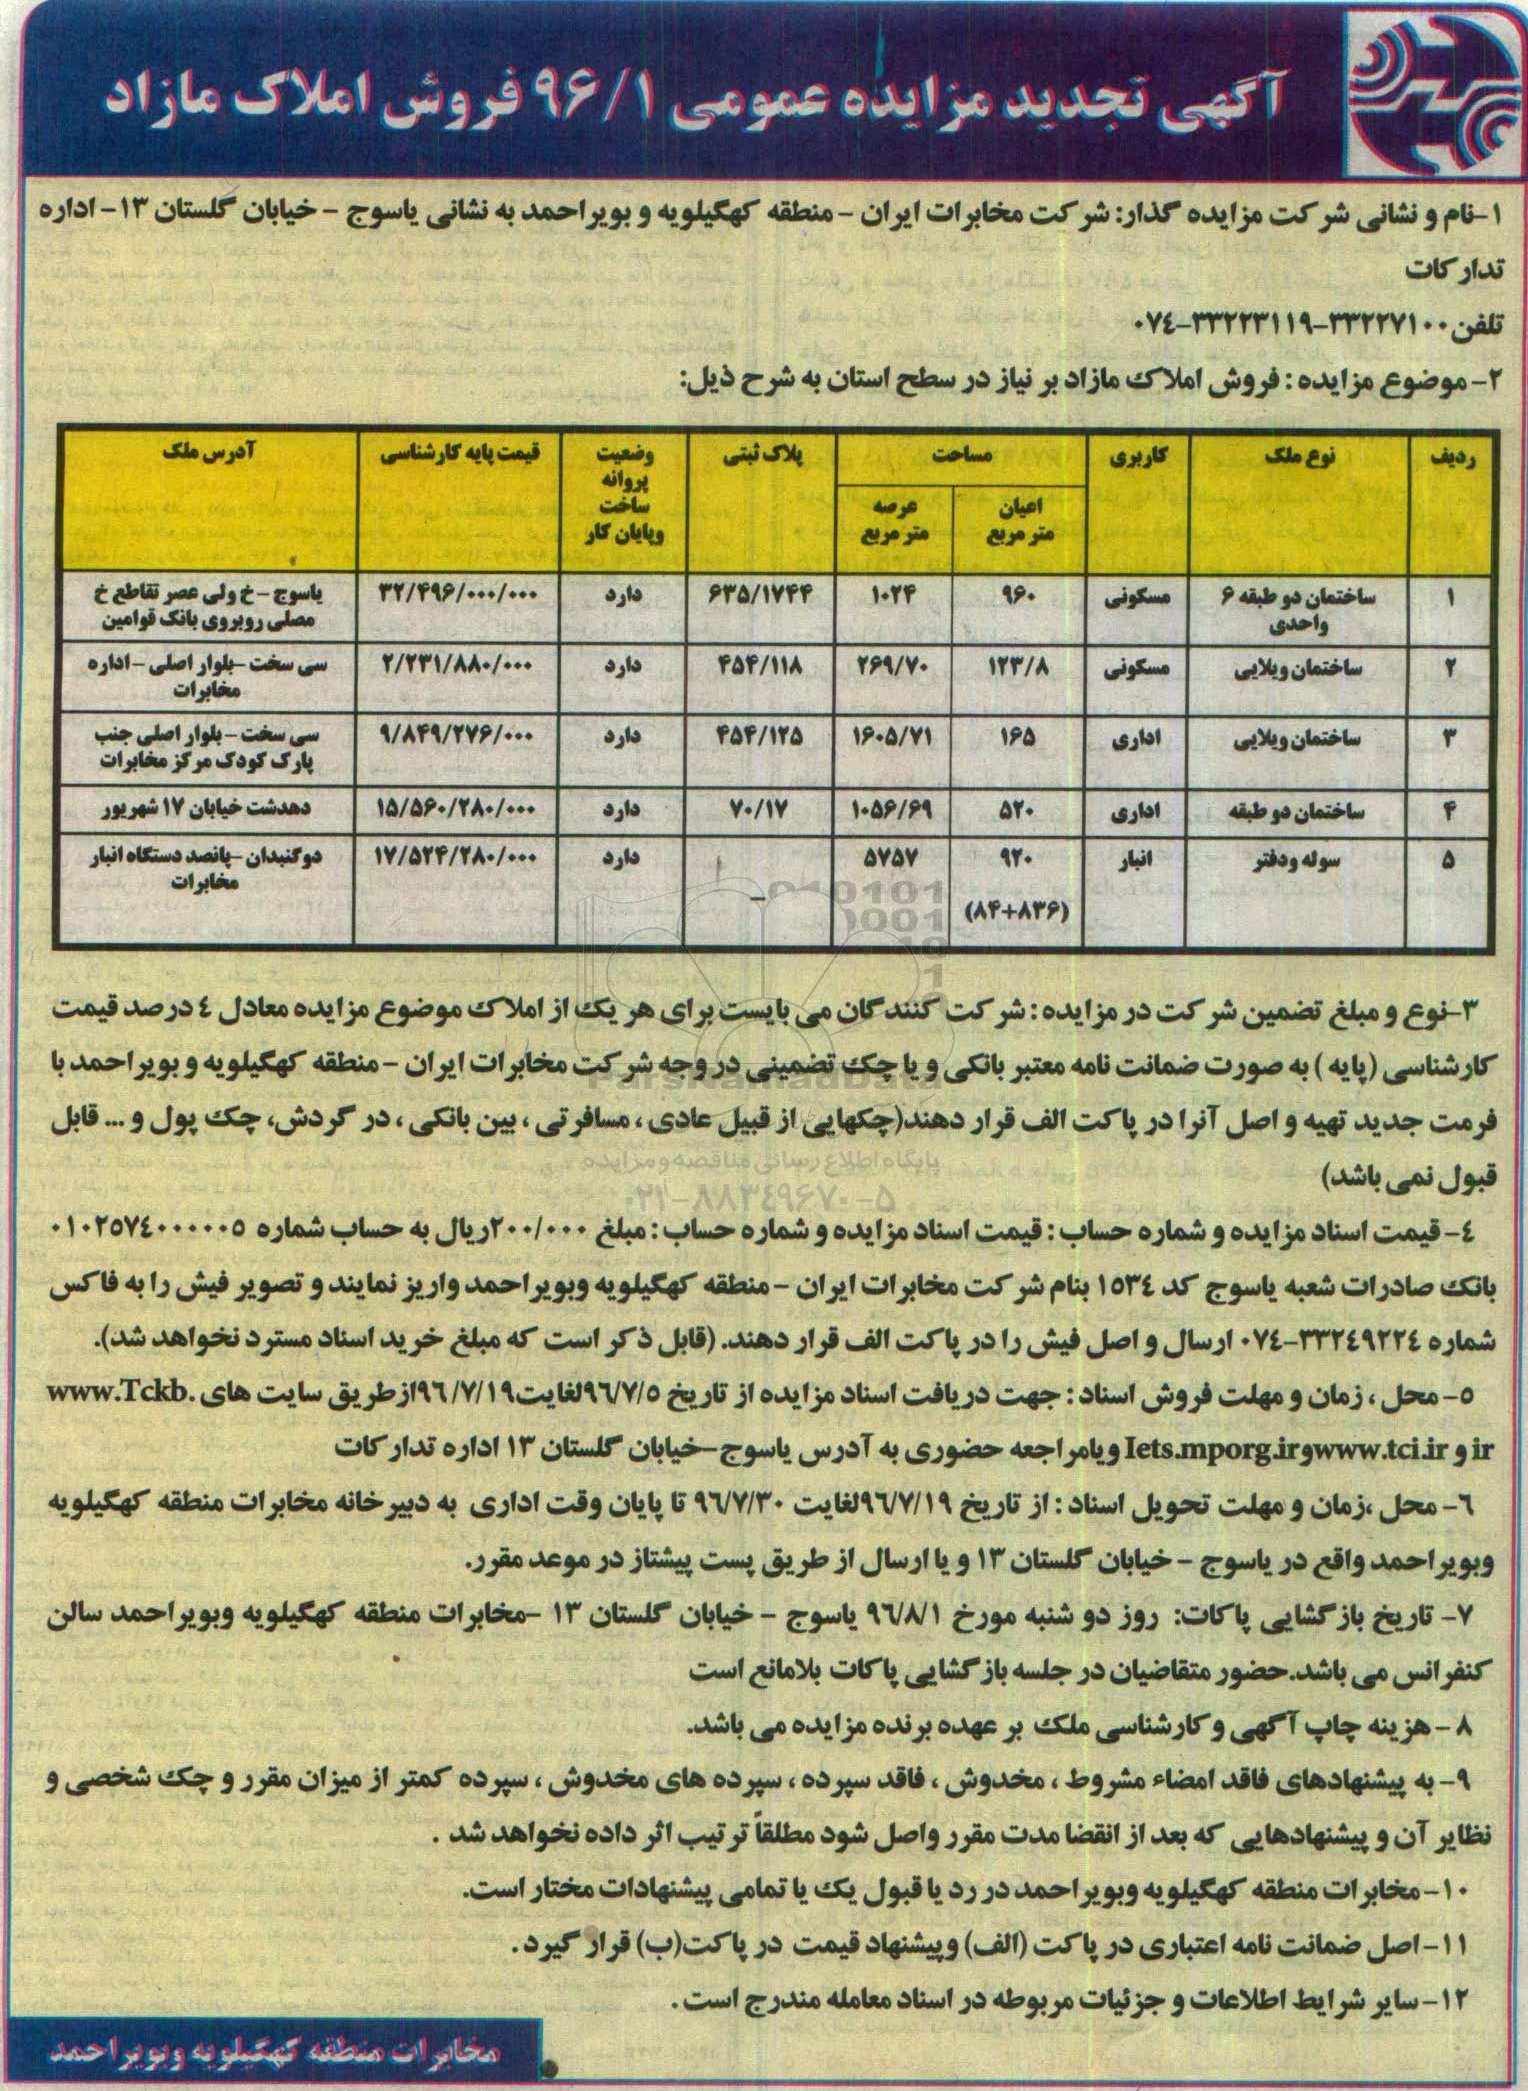 آگهی تجدید مزایده عمومی ۹۶/۱ فروش املاک مازاد
۱-نام و نشانی شرکت مزایده گذار: شرکت مخابرات ایران - منطقه کهگیلویه و بویراحمد به نشانی یاسوج - خیابان گلستان ۱۳- اداره
تدارکات
تلفن ۳۳۲۲۷۱۰۰-۳۳۲۲۳۱۱۹-۰۷۴
۲- موضوع مزایده : فروش املاک مازاد بر نیاز در سطح استان به شرح ذیل:
ردیف نوع ملک کاربری مساحت پلاک ثبتی وضعیت پروانه ساخت وپایان کار قیمت پایه کارشناسی آدرس ملک
اعیان متر مربع عرصه متر مربع
۱ ساختمان دو طبقه ۶ واحدی مسکونی ۹۶۰ ۱۰۲۴ ۶۳۵/۱۷۴۴ دارد ۳۲/۴۹۶/۰۰۰/۰۰۰ یاسوج - خ ولی عصر تقاطع خ مصلی روبروی بانک قوامین
۲ ساختمان ویلایی مسکونی ۱۲۳/۸ ۲۶۹/۷۰ ۴۵۴/۱۱۸ دارد ۲/۲۳۱/۸۸۰/۰۰۰ سی سخت -بلوار اصلی -اداره مخابرات
۳ ساختمان ویلایی اداری ۱۶۵ ۱۶۰۵/۷۱ ۴۵۴/۱۲۵ دارد ۹/۸۴۹/۲۷۶/۰۰۰ سی سخت - بلوار اصلی جنب پارک کودک مرکز مخابرات
۴ ساختمان دو طبقه اداری ۵۲۰ ۱۰۵۶/۶۹ ۷۰/۱۷ دارد ۱۵/۵۶۰/۲۸۰/۰۰۰ دهدشت خیابان ۱۷ شهریور
۵ سوله ودفتر انبار ۹۲۰ (۸۴+۸۳۶) ۵۷۵۷ - دارد ۱۷/۵۲۴/۲۸۰/۰۰۰ دوگنبدان -پانصد دستگاه انبار مخابرات
۳-نوع و مبلغ تضمین شرکت در مزایده : شرکت کنندگان می بایست برای هر یک از املاک موضوع مزایده معادل ٤ درصد قیمت
کارشناسی (پایه ) به صورت ضمانت نامه معتبر بانکی و یا چک تضمینی در وجه شرکت مخابرات ایران - منطقه کهگیلویه و بویراحمد با
فرمت جدید تهیه و اصل آنرا در پاکت الف قرار دهند(چکهایی از قبیل عادی ، مسافرتی ، بین بانکی ، در گردش، چک پول و ... قابل
قبول نمی باشد)
پایگاه اطلاع رسانی مناقصه و مزایده
۰۲۱-۸۸۳۴۹۶۷۰-۵
٤- قیمت اسناد مزایده و شماره حساب : قیمت اسناد مزایده و شماره حساب : مبلغ ۲۰۰/۰۰۰ریال به حساب شماره ۰۱۰۲۵۷٤۰۰۰۰۰۵
بانک صادرات شعبه یاسوج کد ۱۵۳٤ بنام شرکت مخابرات ایران - منطقه کهگیلویه وبویراحمد واریز نمایند و تصویر فیش را به فاکس
شماره ۳۳۲٤۹۲۲٤-۰۷٤ ارسال و اصل فیش را در پاکت الف قرار دهند. (قابل ذکر است که مبلغ خرید اسناد مسترد نخواهد شد).
۵- محل ، زمان و مهلت فروش اسناد : جهت دریافت اسناد مزایده از تاریخ ۹٦/۷/۵لغایت۹٦/۷/۱۹ازطریق سایت های www.Tckb.
ir و www.tci.irوIets.mporg.ir ویامراجعه حضوری به آدرس یاسوج-خیابان گلستان ۱۳ اداره تدارکات
٦- محل ،زمان و مهلت تحویل اسناد : از تاریخ ۹٦/۷/۱۹لغایت ۹٦/۷/۳۰ تا پایان وقت اداری به دبیرخانه مخابرات منطقه کهگیلویه
وبویراحمد واقع در یاسوج - خیابان گلستان ۱۳ و یا ارسال از طریق پست پیشتاز در موعد مقرر.
۷- تاریخ بازگشایی پاکات: روز دو شنبه مورخ ۹٦/۸/۱ یاسوج - خیابان گلستان ۱۳ -مخابرات منطقه کهگیلویه وبویراحمد سالن
کنفرانس می باشد.حضور متقاضیان در جلسه بازگشایی پاکات بلامانع است
۸ - هزینه چاپ آگهی و کارشناسی ملک بر عهده برنده مزایده می باشد.
۹- به پیشنهادهای فاقد امضاء مشروط ، مخدوش ، فاقد سپرده ، سپرده های مخدوش ، سپرده کمتر از میزان مقرر و چک شخصی و
نظایر آن و پیشنهادهایی که بعد از انقضا مدت مقرر واصل شود مطلقاً ترتیب اثر داده نخواهد شد .
۱۰- مخابرات منطقه کهگیلویه وبویراحمد در رد یا قبول یک یا تمامی پیشنهادات مختار است.
۱۱- اصل ضمانت نامه اعتباری در پاکت (الف) وپیشنهاد قیمت در پاکت(ب) قرار گیرد .
۱۲- سایر شرایط اطلاعات و جزئیات مربوطه در اسناد معامله مندرج است .
مخابرات منطقه کهگیلویه وبویراحمد